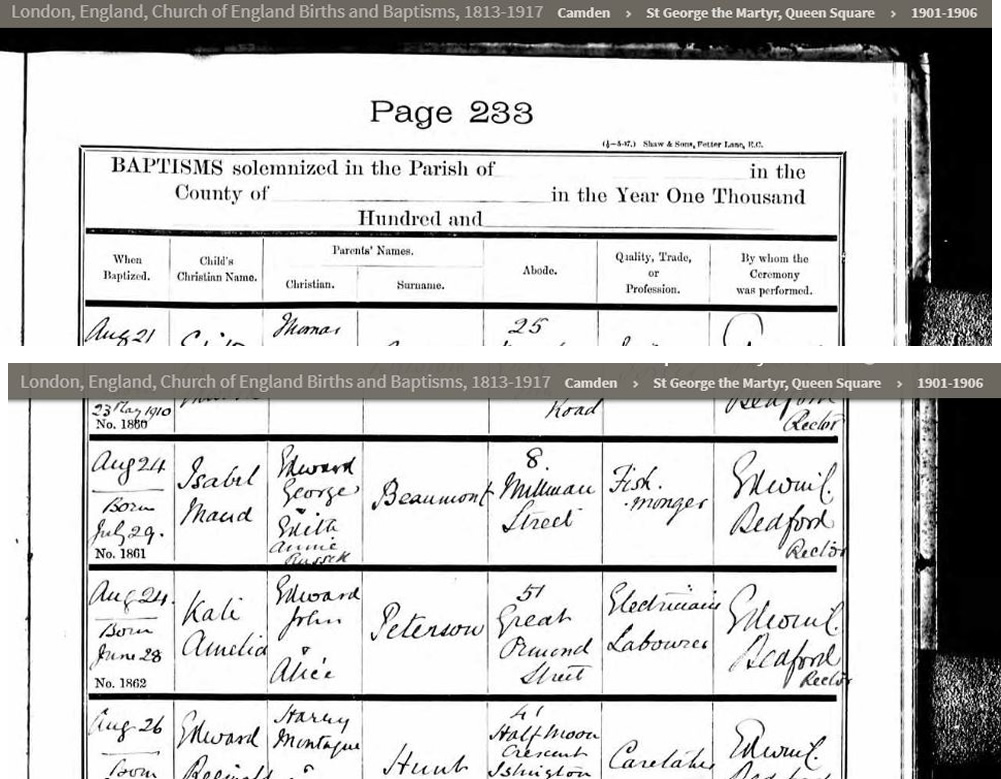 London, England, Church of England Births and Baptisms, 1813-1917 Camden > St George the Martyr, Queen Square > 1901-1906
Page 233
Shaw & Sons, Fetter Lane, E.C.
BAPTISMS solemnized in the Parish of in the
County of in the Year One Thousand
Hundred and
When Baptized.
Child's Christian Name.
Parents' Names.
Christian.
Surname.
Abode.
Quality, Trade, or Profession.
By whom the Ceremony was performed.
Aug 21
Thomas
25
London, England, Church of England Births and Baptisms, 1813-1917 Camden > St George the Martyr, Queen Square > 1901-1906
23 May 1910
No. 1860
Road
Bedford
Rector
Aug 24
Born
July 29.
No. 1861
Isabel
Maud
Edward
George
&
Edith
Annie
Beaumont
8.
Millman
Street
Fish.
monger
Edwin C.
Bedford
Rector
Aug 24.
Born
June 28
No. 1862
Kate
Amelia
Edward
John
&
Alice
Peterson
51
Great
Ormond
Street
Electricians
Labourer
Edwin C.
Bedford
Rector
Aug 26
Born
Edward
Reginald
Harry
Montague
&
Hunt
41
Half Moon
Crescent
Islington
Caretaker
Edwin C.
Bedford